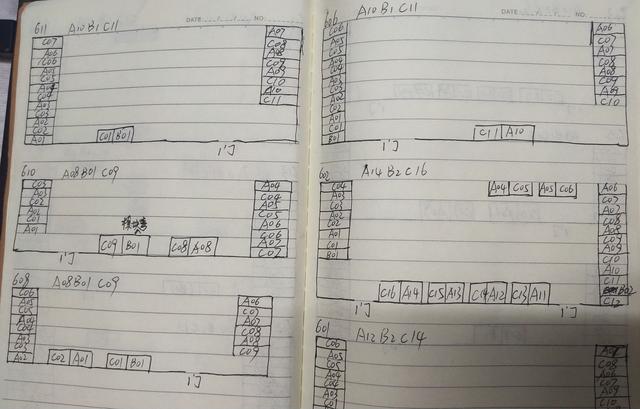 DATE NO.
611 A10 B1 C11
C07
A06
C06
A05
C05
A04
C04
A03
C03
A02
C02
A01
A07
C08
A08
C09
A09
C10
A10
C11
C01 B01
门
610 A08 B01 C09
C03
A03
C02
A02
C01
A01
A04
C04
A05
C05
A06
C06
A07
C07
C09 B01
C08 A08
门
608 A08 B01 C09
C06
A05
C05
A04
C04
A03
C03
A02
A06
C07
A07
C08
A08
C09
C02 A01
C01 B01
门
DATE NO.
606 A10 B1 C11
C06
A05
C05
A04
C04
A03
C03
A02
C02
A01
C01
B01
A06
C07
A07
C08
A08
C09
A09
C10
C11 A10
门
602 A14 B2 C16
C04
A03
C03
A02
C02
A01
C01
B01
A04 C05
A05 C06
A06
C07
A07
C08
A08
C09
A09
C10
A10
C11
B02
C12
C16 A14
C15 A13
C14 A12
C13 A11
门
门
601 A12 B2 C14
C06
A05
C05
A04
C04
A03
C03
C08
A06
C07
A09
C10